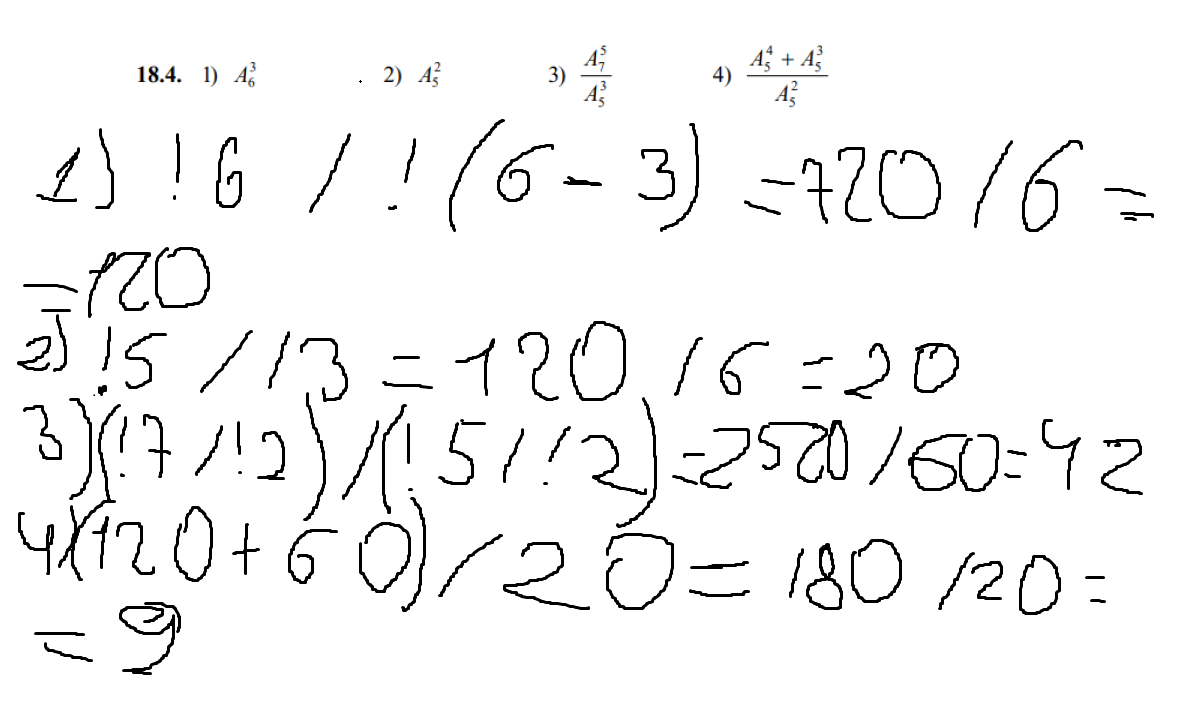 18.4. 1) A₆³ . 2) A₅² 3) A₇⁵ / A₅³ 4) (A₅⁴ + A₅³) / A₅²
1) !6 / !(6 - 3) = 720 / 6 =
= 120
2) !5 / !3 = 120 / 6 = 20
3) (!7 / !2) / (!5 / !2) = 2520 / 60 = 42
4) (120 + 60) / 20 = 180 / 20 =
= 9